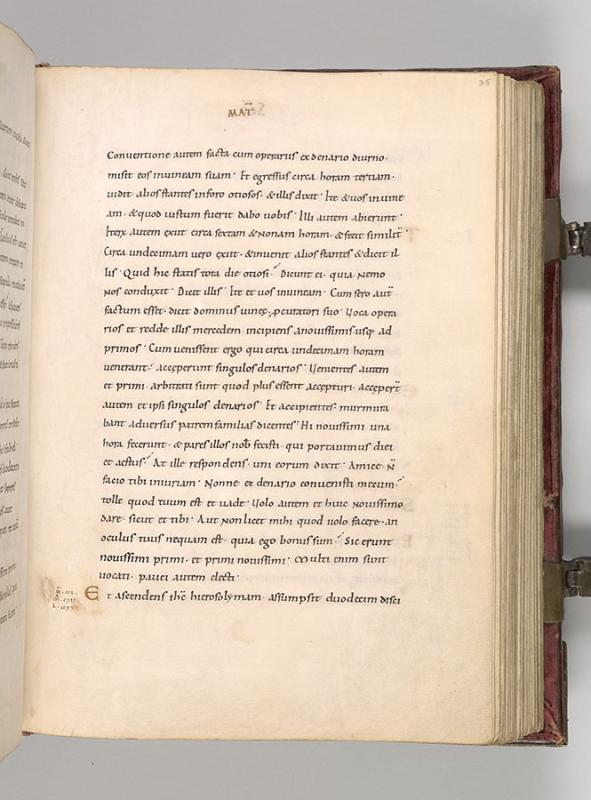 35
MAT
Conventione autem facta cum operariis ex denario diurno ·
misit eos in vineam suam · Et egressus circa horam tertiam ·
vidit alios stantes in foro otiosos · & illis dixit · Ite & vos in vine
am · & quod iustum fuerit dabo vobis · Illi autem abierunt ·
exiit circa sextam & nonam horam · & fecit similit̄ ·
Circa undecimam vero exiit · & invenit alios stantes & dicit il
lis · Quid hic statis tota die otiosi · Dicunt ei · quia nemo
nos conduxit · Dicit illis · Ite et vos in vineam · Cum sero aut̄
factum esset · dicit dominus vineę · ꝓcuratori suo · Voca opera
rios et redde illis mercedem incipiens a novissimis usq; ad
primos · Cum venissent ergo qui circa undecimam horam
venerant · acceperunt singulos denarios · Venientes autem
et primi · arbitrati sunt quod plus essent accepturi · acceper̄t
autem et ipsi singulos denarios · Et accipientes · murmura
bant adversus patrem familias dicentes · Hi novissimi una
hora fecerunt · & pares illos nob̄ fecisti · qui portavimus diei
et aestus · At ille respondens · uni eorum dixit · Amice · n̄
facio tibi iniuriam · Nonne ex denario convenisti mecum ·
tolle quod tuum est et vade · Volo autem et huic novissimo
dare · sicut et tibi · Aut non licet mihi quod volo facere · an
oculus tuus nequam est · quia ego bonus sum · Sic erunt
novissimi primi · et primi novissimi · Multi enim sunt
vocati · pauci autem electi ·
Et ascendens ih̄c hierosolymam · assumpsit duodecim disci